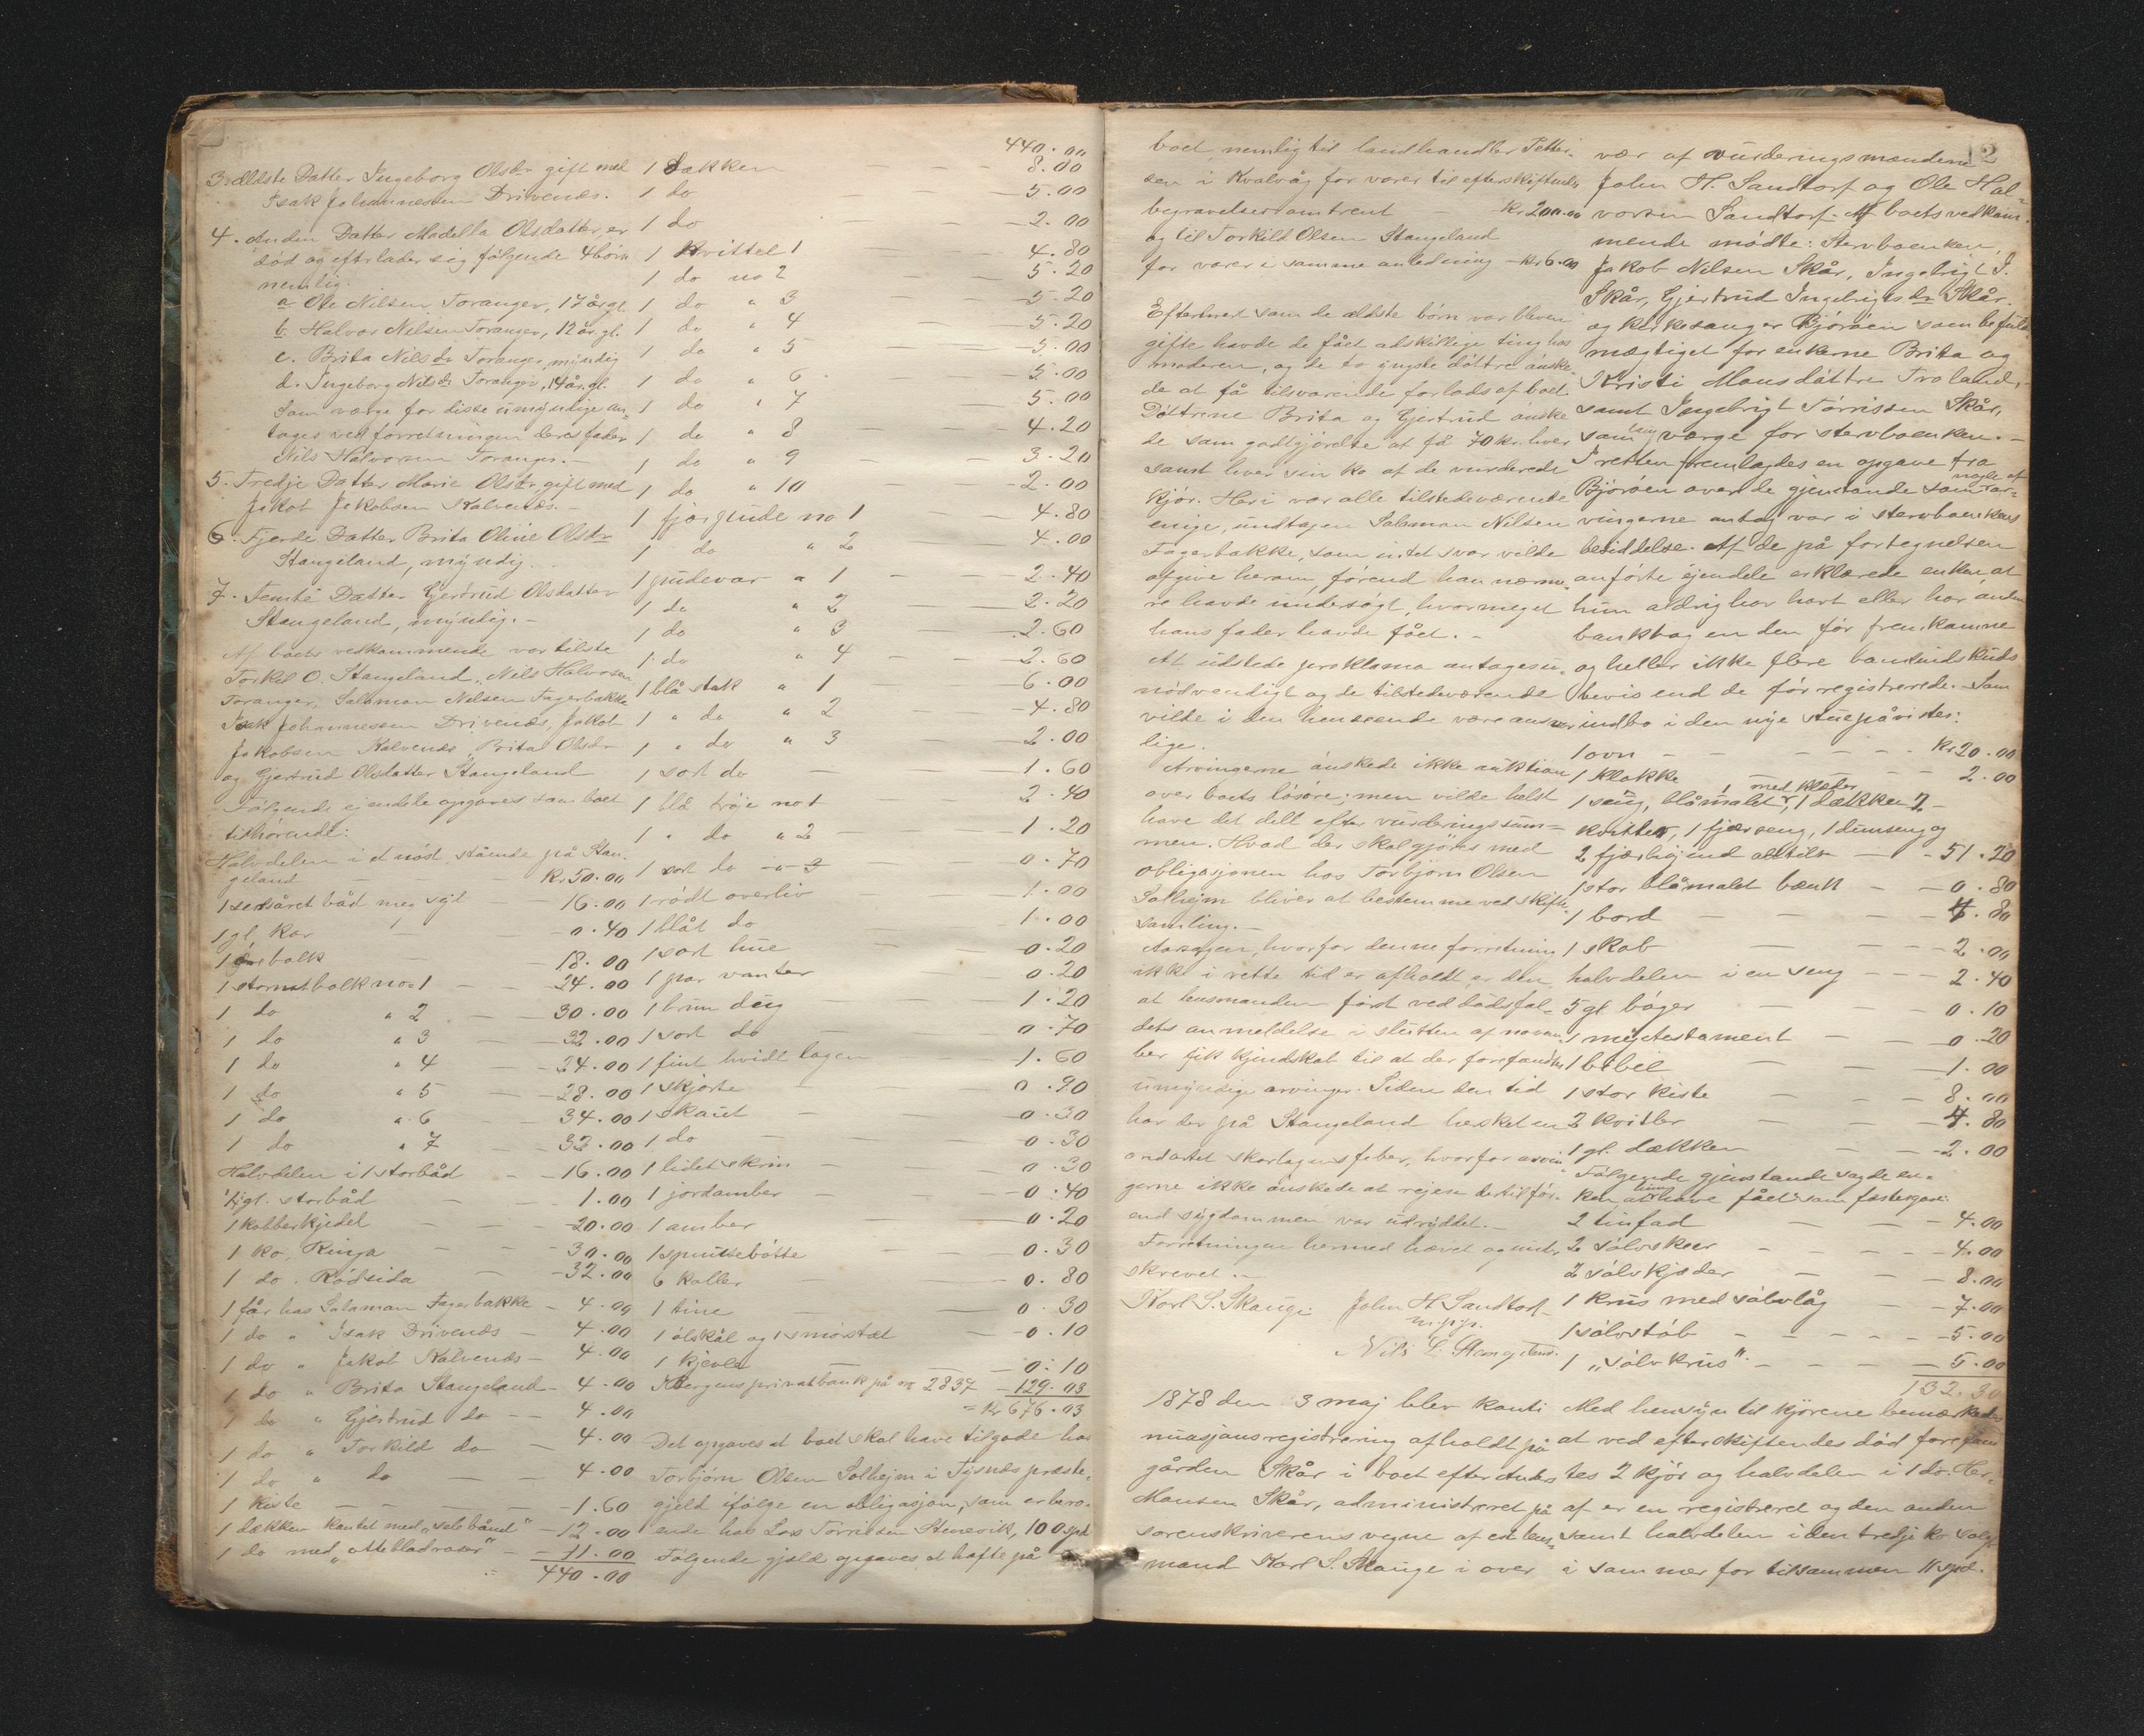 3 ældste Datter Ingeborg Olsdr gift med
Isak Johannessen Drivenæs.
4. Anden Datter Madella Olsdatter, er
død og efterlader sig følgende 4 børn
nemlig:
a Ole Nilsen Toranger, 17 år gl.
b. Halvor Nilsen Toranger, 12 år gl.
c. Brita Nilsdr Toranger, myndig
d. Ingeborg Nilsdr Toranger, 14 år gl.
Som værge for disse umyndige an-
tages ved forretningen deres fader
Nils Halvorsen Toranger.-
5. Tredje Datter Marie Olsdr gift med
Jakob Jakobsen Kalvenæs.-
6. Fjerde Datter Brita Oline Olsdr
Stangeland, myndig.
7. Femte Datter Gjertrud Olsdatter
Stangeland, myndig.-
Af boets vedkommende var tilstede
Torkel O. Stangeland, Nils Halvorsen
Toranger, Salamon Nilsen Fagerbakke
Isak Johannessen Drivenæs, Jakob
Jakobsen Kalvenæs, Brita Olsdr
og Gjertrud Olsdatter Stangeland
Følgende ejendele opgaves som boet
tilhørende:
Halvdelen i et nøst, stående på Stan-
geland Kr. 50.00
1 seksåret båd med sejl 16.00
1 gl. kar 0.40
1 balk 18.00
1 stornotbalk no 1 24.00
1 do " 2 30.00
1 do " 3 32.00
1 do " 4 24.00
1 do " 5 28.00
1 do " 6 34.00
1 do " 7 32.00
Halvdelen i 1 storbåd 16.00
1 gl. storbåd 1.00
1 kobberkjedel 20.00
1 ko, Ringa 30.00
1 do. Rødsida 32.00
1 får hos Salamon Fagerbakke 4.00
1 do " Isak Drivenæs 4.00
1 do " Jakob Kalvenæs 4.00
1 do " Brita Stangeland 4.00
1 do " Gjertrud do 4.00
1 do " Torkild do 4.00
1 do " do 4.00
1 kiste 1.60
1 dækken kantet med "selebånd" 12.00
1 do med "ottebladroser" 11.00
440.00
440.00
1 dækken 8.00
1 do 5.00
1 do 2.00
1 Kvittel 1 4.80
1 do no 2 5.20
1 do " 3 5.20
1 do " 4 5.20
1 do " 5 5.00
1 do " 6 5.00
1 do " 7 5.00
1 do " 8 4.20
1 do " 9 3.20
1 do " 10 2.00
1 fjærpude no 1 4.80
1 do " 2 4.00
1 pudevar " 1 2.40
1 do " 2 2.20
1 do " 3 2.60
1 do " 4 2.60
1 blå stak " 1 6.00
1 " do " 2 4.80
1 " do " 3 2.00
1 sort do 1.60
1 blå trøje no 1 2.40
1 " do " 2 1.20
1 sort do " 3 0.70
1 rødt overliv 1.00
1 blåt do 1.00
1 sort hue 0.20
1 par vanter 0.20
1 brun dug 1.20
1 sort do 0.70
1 fint hvidt lagen 1.60
1 skjorte 0.90
1 skaut 0.30
1 do 0.30
1 lidet skrin 0.30
1 jordamber 0.40
1 amber 0.20
1 spruttebøtte 0.30
6 koller 0.80
1 tine 0.30
1 ølskål og 1 smørstet 0.10
1 kjevle 0.10
Bergens privatbank på no 2837 129.03
= Kr 676.03
Det opgaves at boet skal have tilgode hos
Torbjørn Olsen Solhejm i Tysnæs præste-
gjeld ifølge en obligasjon, som er bero-
ende hos Lars Torrisen Stenevik, 100 spd
Følgende gjæld opgaves at hæfte på
boet, nemlig til landhandler Petter-
sen i Kvalvåg for varer til efterskiftendes
begravelse omtrent Kr 200.00
og til Torkild Olsen Stangeland
for varer i samme anledning Kr 6.00
Eftersom som de ældste børn var bleven
gifte havde de fået adskillige ting hos
moderen, og de to yngste døttre ønske-
de at få tilsvarende forlods af boet.
Døttrene Brita og Gjertrud ønske
de som godtgjørelse at få 70 kr. hver
samt hver sin ko af de vurderede
kjør. Heri var alle tilstedeværende
enige, undtagen Salamon Nilsen
Fagerbakke, som intet svar vilde
afgive herom, førend han nærme-
re havde undersøgt, hvormeget
hans fader havde fået.-
At udstede proklama antages u-
nødvendigt og de tilstedeværende
vilde i den henseende være ansvar
lige.
Arvingerne ønskede ikke auktion
over boets løsøre; men vilde helst
have det delt efter vurderingssum-
men. Hvad der skal gjøres med
obligasjonen hos Torbjørn Olsen
Solhejm bliver at bestemme ved skifte-
samling.-
Aarsagen, hvorfor denne forretning
ikke i rette tid er afholdt, er den,
at lensmanden først ved dødsfal-
dets anmeldelse i slutten af novem-
ber fik kjendskab til at der forefandtes
umyndige arvinger. Siden den tid
har der på Stangeland hersket en
ondartet skarlagensfeber, hvorfor arvin-
gerne ikke ønskede at rejsen dertil før-
end sygdommen var udryddet.-
Forretningen hermed hævet og under-
skrevet.-
Karl S. Skauge John H Sandtorf
m.p.p.
Nils L. Stangeland.
1878 den 3 maj blev konti
nuasjonsregistrering afholdt på
gården Skår i boet efter Anders
Monsen Skår, administreret på
sorenskriverens vegne af en lens-
mand Karl S. Skauge i over
12
vær af vurderingsmændene
John H. Sandtorf og Ole Hal-
vorsen Sandtorf. Af boets vedkom-
mende mødte: Stervboenken,
Jakob Nilsen Skår, Ingebrigt I.
Skår, Gjertrud Ingebrigtsdr Skår.
og kirkesanger Bjørøen som befuld-
mægtiget for enkerne Brita og
Kristi Monsdøttre Troland,
samt Ingebrigt Tørrissen Skår,
som lavværge for stervboenken.-
I retten fremlagdes en opgave fra
Bjørøen over de gjenstande som nogle af ar-
vingerne antog var i stervboenkens
besiddelse. Af de på fortegnelsen
anførte ejendele erklærede enken, at
hun aldrig har havt eller har, anden
bankbog en den før fremkomne
og heller ikke flere bankindskuds
bevis end de før registrerede. Som
indbo i den nye stue påvistes:
1 ovn Kr 20.00
1 klokke 2.00
1 seng, blåmalet, med klæder, 1 dækken, 2
kvitler, 1 fjærseng, 1 dunseng og
2 fjærhøjend alt til 51.20
1 stor blåmalet bænk 0.80
1 bord 4.80
1 skab 2.00
halvdelen i en seng 2.40
5 gl. bøger 0.10
1 nyetestament 0.20
1 bibel 1.00
1 stor kiste 8.00
2 kvitler 4.80
1 gl. dækken 2.00
Følgende gjenstande sagde en-
ken at hun have fået som fæstegave:
2 tinfad 4.00
2 sølvskeer 4.00
2 sølvkjæder 8.00
1 krus med sølvlåg 7.00
1 sølvstøb 5.00
1 "sølvkrus" 5.00
132.30
Med hensyn til kjørene bemærkedes
at ved efterskiftendes død forefand-
tes 2 kjør og halvdelen i 1 do. Her-
af er en registreret og den anden
samt halvdelen i den tredje ko solgt
i sommer for tilsammen 11 spd.